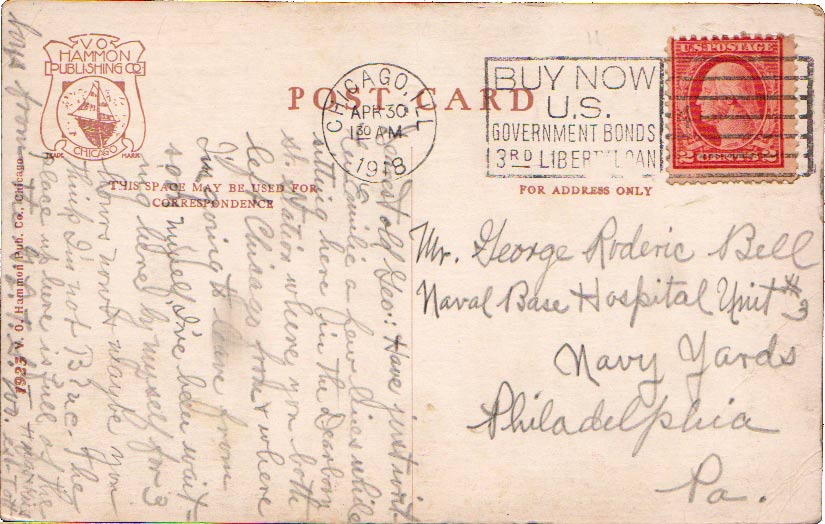 V.O.
HAMMON
PUBLISHING CO
TRADE MARK
CHICAGO
POST CARD
CHICAGO, ILL
APR 30
1 30 AM
1918
BUY NOW
U.S.
GOVERNMENT BONDS
3RD LIBERTY LOAN
U.S. POSTAGE
2 CENTS 2
THIS SPACE MAY BE USED FOR
CORRESPONDENCE
FOR ADDRESS ONLY
Mr. George Roderic Bell
Naval Base Hospital Unit #3
Navy Yards
Philadelphia
Pa.
Dear old Geo.: Have just writ-
a few lines while
sitting here in the Dearborn
st. station where you both
left Chicago from & where
I'm going to leave from
soon myself, I've been wait-
ing here by myself for 3
hours now & maybe you
think I'm not Blue. The
place up here is full of the
boys from
1925 V. O. Hammon Pub. Co., Chicago